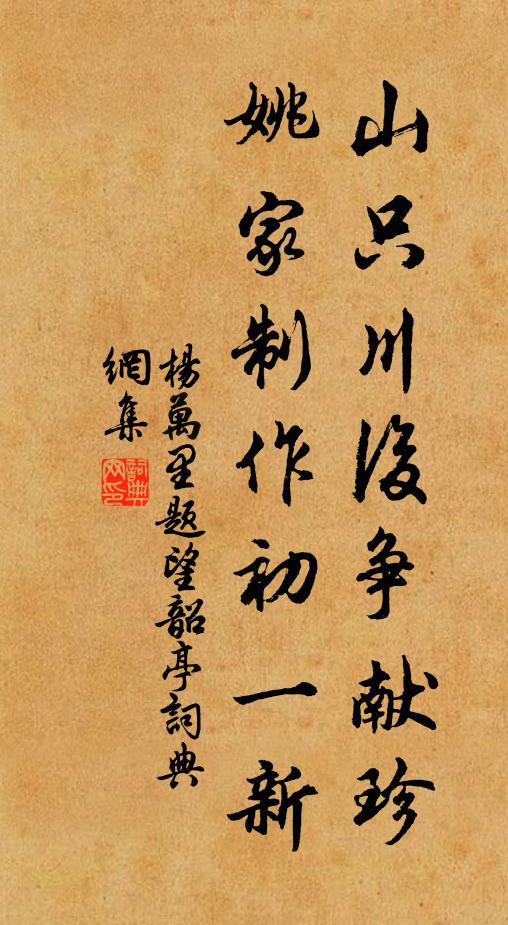 山只川後争献珍
姚家制作初一新
楊萬里题望韶亭詞典
網集
詞典
网印